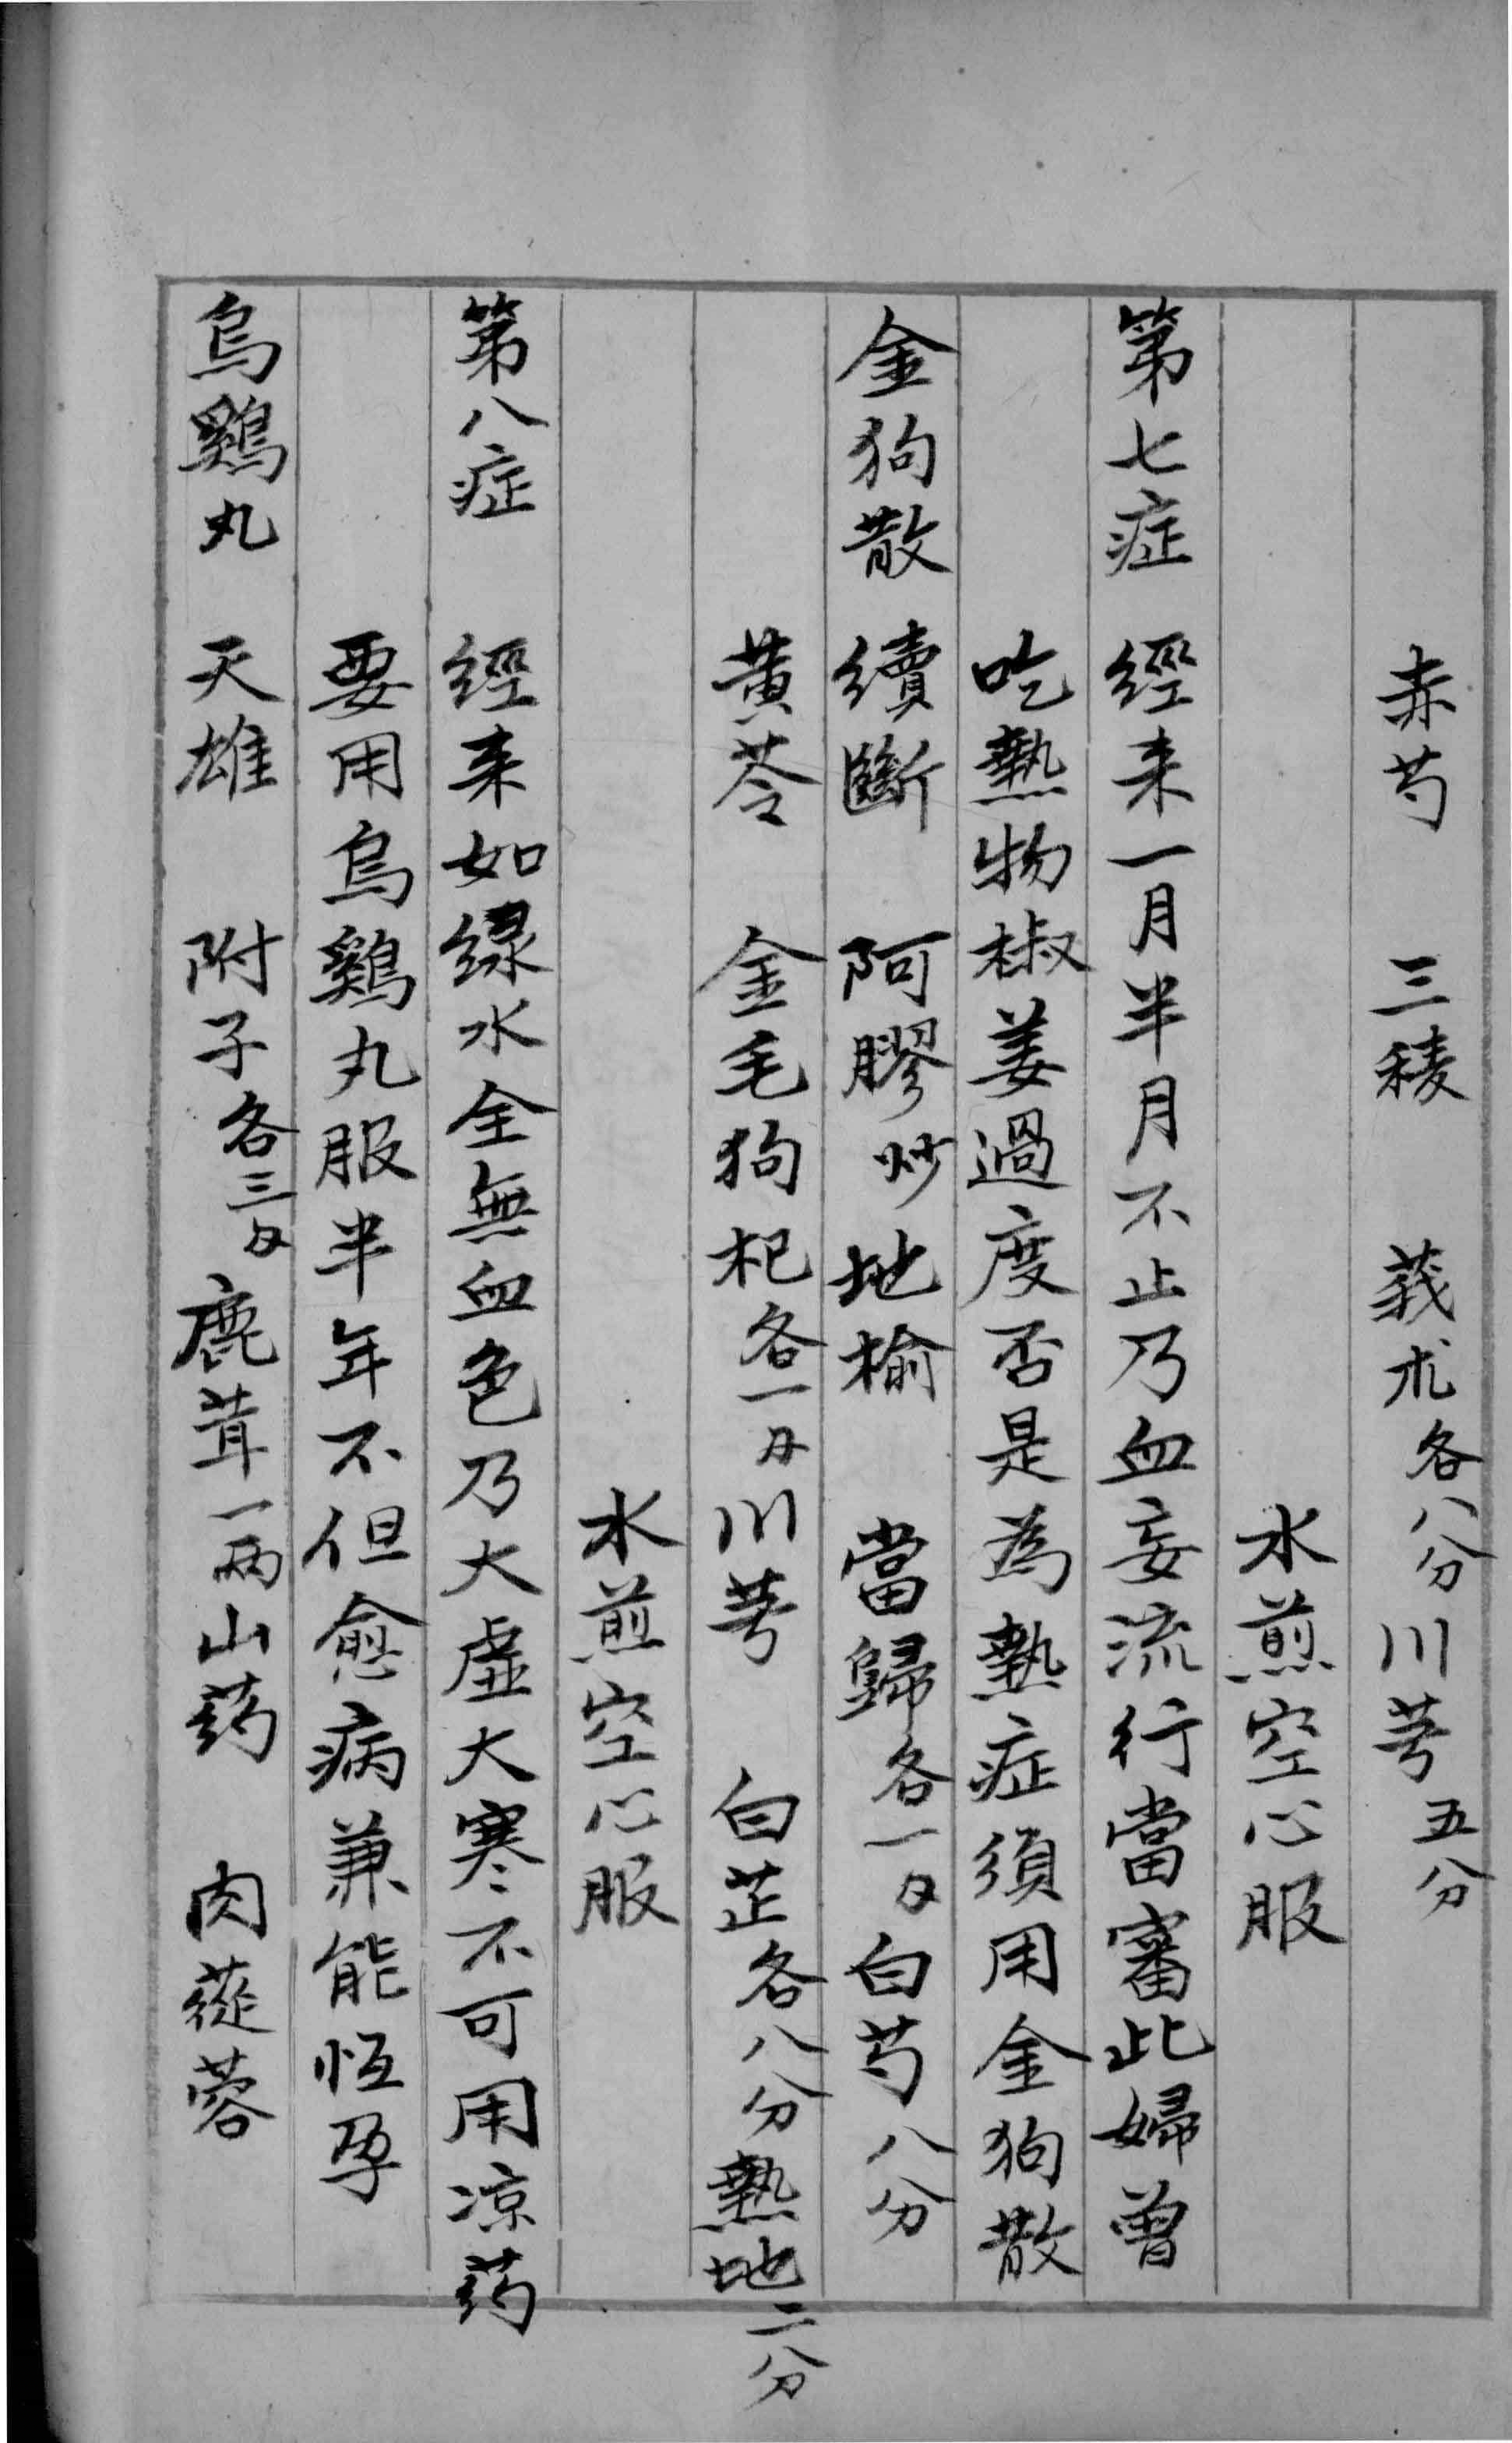 赤芍 三稜 莪朮各八分川芎五分
水煎空心服
第七症 經来一月半月不止乃血妄流行當審此婦曾
吃熱物椒姜過度否是為熱症須用金狗散
金狗散 續斷 阿膠炒 地榆 當歸各一 白芍八分
黄芩 金毛狗杞各一 川芎 白芷各八分熱地二分
水煎空心服
第八症 經来如緑水全無血色乃大虚大寒不可用凉药
要用烏鷄丸服半年不但愈病兼能恆孕
烏鷄丸 天雄 附子各三 鹿茸一兩山药 肉蓯蓉